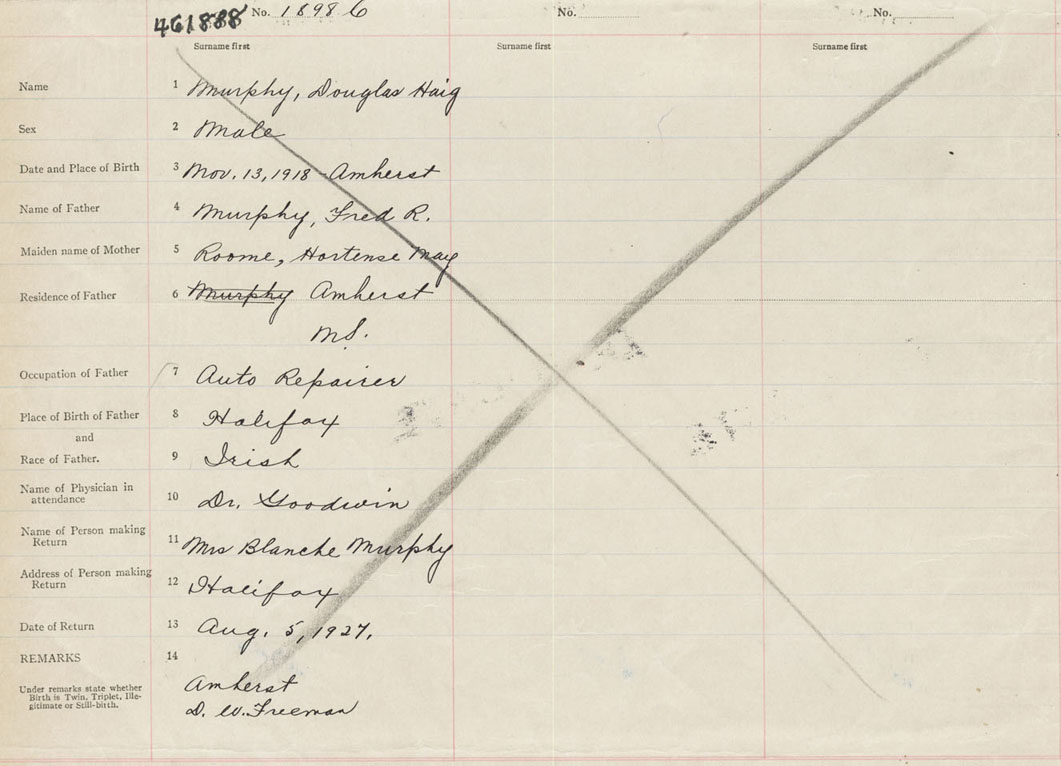 461888 No. 18986 No. No.
Surname first Surname first Surname first
Name 1 Murphy, Douglas Haig
Sex 2 Male
Date and Place of Birth 3 Nov. 13, 1918 - Amherst
Name of Father 4 Murphy, Fred R.
Maiden name of Mother 5 Roome, Hortense May
Residence of Father 6 Murphy Amherst
N.S.
Occupation of Father 7 Auto Repairer
Place of Birth of Father 8 Halifax
and
Race of Father. 9 Irish
Name of Physician in
attendance 10 Dr. Goodwin
Name of Person making
Return 11 Mrs Blanche Murphy
Address of Person making
Return 12 Halifax
Date of Return 13 Aug. 5, 1927.
REMARKS 14
Under remarks state whether Amherst
Birth is Twin, Triplet, Ille-
gitimate or Still-birth. D. W. Freeman